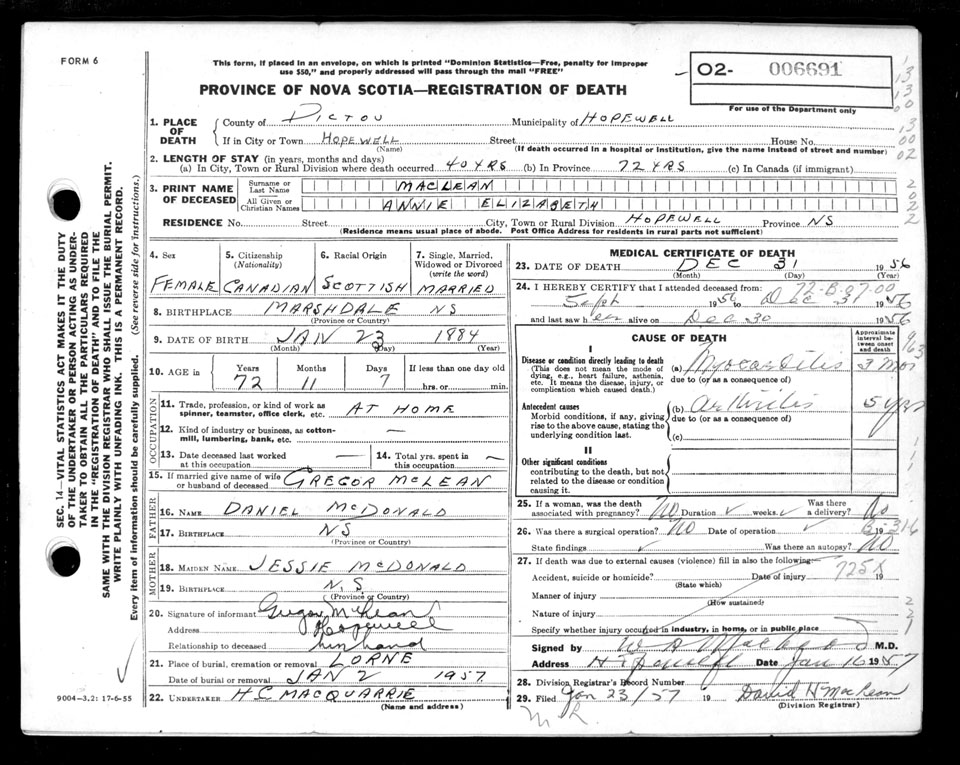 FORM 6
This form, if placed in an envelope, on which is printed "Dominion Statistics—Free, penalty for improper
use $50," and properly addressed will pass through the mail "FREE"
O2- 006691
For use of the Department only
PROVINCE OF NOVA SCOTIA—REGISTRATION OF DEATH
1. PLACE OF DEATH
County of PICTOU Municipality of HOPEWELL
If in City or Town HOPEWELL Street House No.
(Name) (If death occurred in a hospital or institution, give the name instead of street and number)
2. LENGTH OF STAY (in years, months and days)
(a) In City, Town or Rural Division where death occurred 40 YRS (b) In Province 72 YRS (c) In Canada (if immigrant)
3. PRINT NAME OF DECEASED
Surname or Last Name MACLEAN
All Given or Christian Names ANNIE ELIZABETH
RESIDENCE No. Street City, Town or Rural Division HOPEWELL Province NS
(Residence means usual place of abode. Post Office Address for residents in rural parts not sufficient)
4. Sex 5. Citizenship (Nationality) 6. Racial Origin 7. Single, Married, Widowed or Divorced (write the word)
FEMALE CANADIAN SCOTTISH MARRIED
8. BIRTHPLACE MARSHDALE NS
(Province or Country)
9. DATE OF BIRTH JAN 23 1884
(Month) (Day) (Year)
10. AGE in Years Months Days If less than one day old
72 11 7 hrs. or min.
OCCUPATION
11. Trade, profession, or kind of work as spinner, teamster, office clerk, etc. AT HOME
12. Kind of industry or business, as cotton-mill, lumbering, bank, etc. —
13. Date deceased last worked at this occupation — 14. Total yrs. spent in this occupation —
15. If married give name of wife or husband of deceased GREGOR McLEAN
FATHER
16. NAME DANIEL McDONALD
17. BIRTHPLACE NS
(Province or Country)
MOTHER
18. MAIDEN NAME JESSIE McDONALD
19. BIRTHPLACE N.S
(Province or Country)
20. Signature of informant Gregor McLean
Address Hopewell
Relationship to deceased husband
21. Place of burial, cremation or removal LORNE
Date of burial or removal JAN 2 1957
22. UNDERTAKER H.C. MACQUARRIE
(Name and address)
9004—3.2: 17-6-55
SEC. 14—VITAL STATISTICS ACT MAKES IT THE DUTY
OF THE UNDERTAKER OR PERSON ACTING AS UNDER-
TAKER TO OBTAIN ALL THE PARTICULARS REQUIRED
IN THE "REGISTRATION OF DEATH" AND TO FILE THE
SAME WITH THE DIVISION REGISTRAR WHO SHALL ISSUE THE BURIAL PERMIT.
WRITE PLAINLY WITH UNFADING INK. THIS IS A PERMANENT RECORD.
Every item of information should be carefully supplied. (See reverse side for instructions.)
MEDICAL CERTIFICATE OF DEATH
23. DATE OF DEATH DEC 31 1956
(Month) (Day) (Year)
24. I HEREBY CERTIFY that I attended deceased from:
72-B-07-00
Sept 1956 to Dec 31 1956
and last saw her alive on Dec 30 1956
CAUSE OF DEATH Approximate interval between onset and death
I
Disease or condition directly leading to death
(This does not mean the mode of dying, e.g., heart failure, asthenia, etc. It means the disease, injury, or complication which caused death.)
(a) Myocarditis 3 mos
due to (or as a consequence of)
Antecedent causes
Morbid conditions, if any, giving rise to the above cause, stating the underlying condition last.
(b) Arthritis 5 yrs
due to (or as a consequence of)
(c)
II
Other significant conditions
contributing to the death, but not related to the disease or condition causing it.
25. If a woman, was the death associated with pregnancy? No Duration weeks. Was there a delivery? No
26. Was there a surgical operation? No Date of operation 19
State findings Was there an autopsy? No
27. If death was due to external causes (violence) fill in also the following—
Accident, suicide or homicide? Date of injury 19
725X
(State which)
Manner of injury
(How sustained)
Nature of injury
Specify whether injury occurred in industry, in home, or in public place
Signed by M.D.
Address Hopewell Date Jan 16 1957
28. Division Registrar's Record Number
29. Filed Jan 23/57 19 David H MacLean
(Division Registrar)